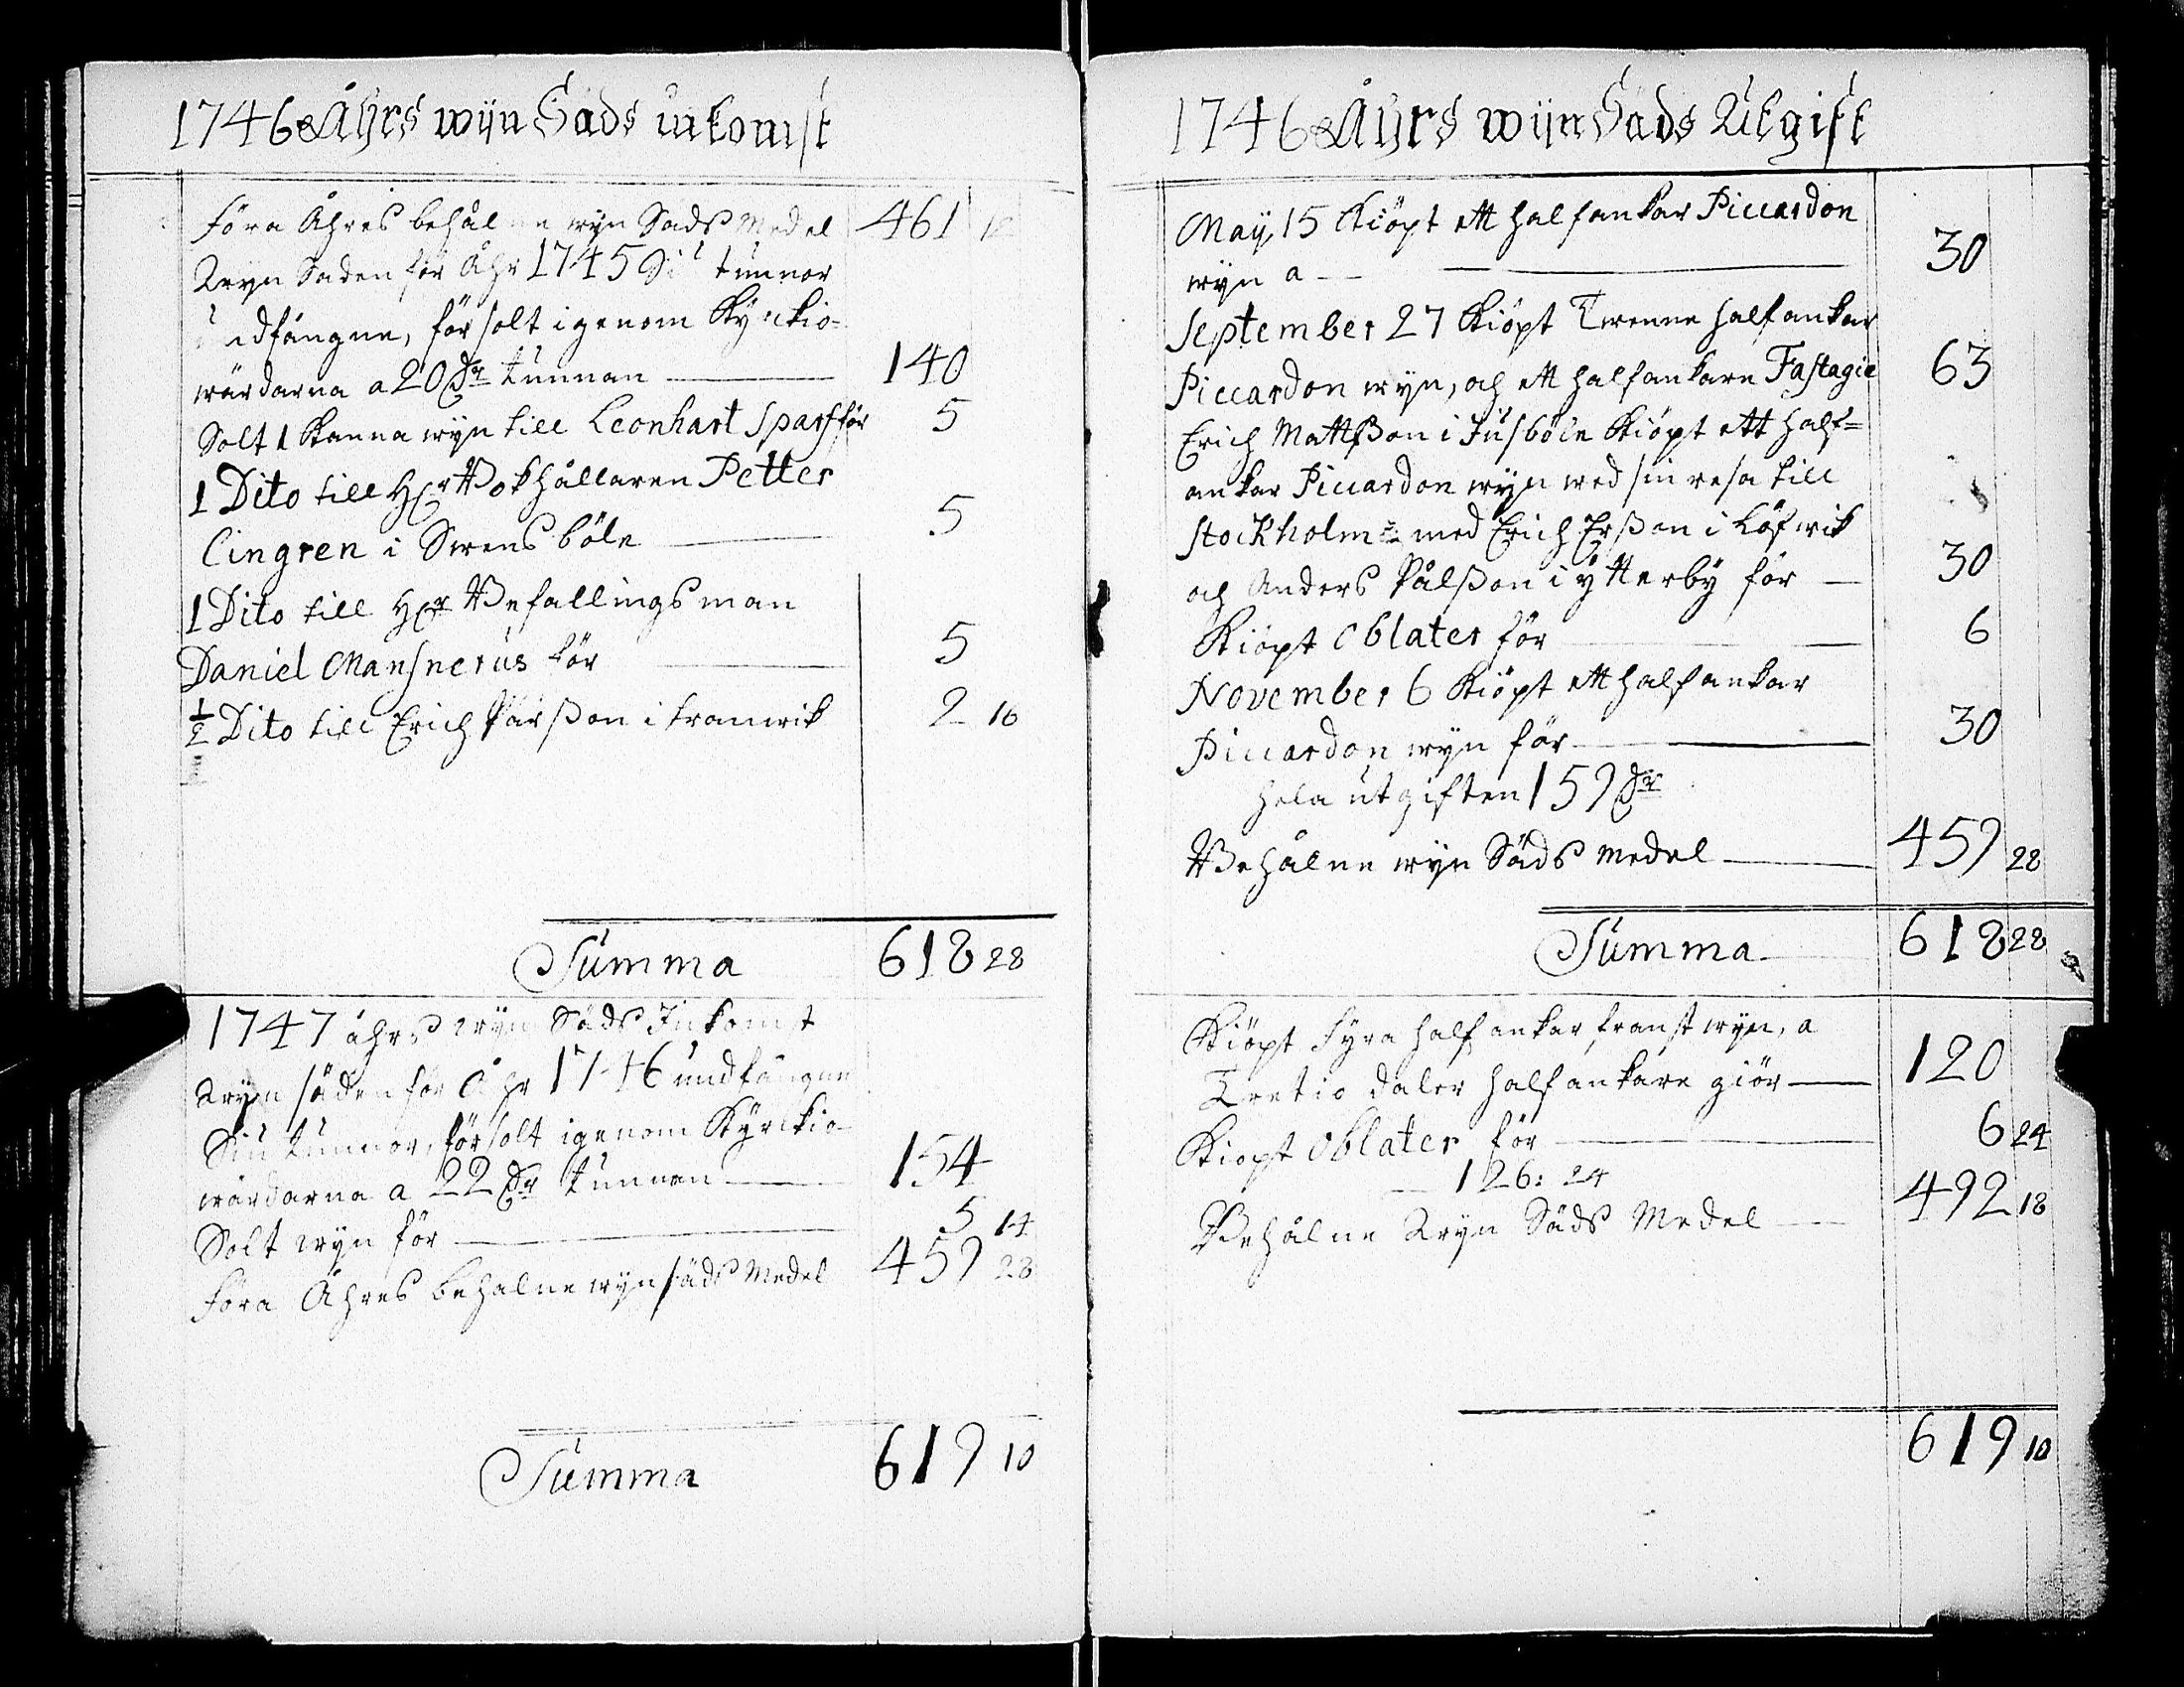 1746 Åhrs wijn Säds inkomst
Föra Åhres behålne wijn Säds Medel 461 12
Wijn Säden för Åhr 1745 Siu tunnor
undfångne, försolt igenom Kyrckio-
wärdarna a 20 Dr tunnan 140
Solt 1 Kanna wijn till Leonhart Sparf för 5
1 Dito till Hr Bokhållaren Petter
Lingren i Swensböle 5
1 Dito till Hr Befallingsman
Daniel Mansnerus för 5
½ Dito till Erich Pärsson i Framwik 2 16
Summa 618 28
1747 åhrs wijn Säds Inkomst
Wijn säden för Åhr 1746 undfångne
Siu tunnor, försolt igenom Kyrckio-
wärdarna a 22 Dr tunnan 154
Solt wijn för 5 14
Föra Åhres behalne wijn säds Medel 459 28
Summa 619 10
1746 Åhrs wijn Säds Utgift
Maij, 15 Kiöpt ett halfankar Piccardon
wijn a 30
September 27 Kiöpt Twenne halfankar
Piccardon wijn, och ett halfankare Fastagie 63
Erich Mattsson i Jusböle Kiöpt ett half=
ankar Piccardon wijn wed sin resa till
Stockholm med Erich Ersson i Löfwik
och Anders Pålsson i ytterby för 30
Kiöpt Oblater för 6
November 6 Kiöpt ett halfankar
Piccardon wijn för 30
hela utgiften 159 Dr
Behålne wijn Säds medel 459 28
Summa 618 28
Kiöpt Fyra halfankar franst wijn, a
Tretio daler halfankare giör 120
Kiöpt Oblater för 6 24
126: 24
Behålne Wijn Säds Medel 492 18
619 10